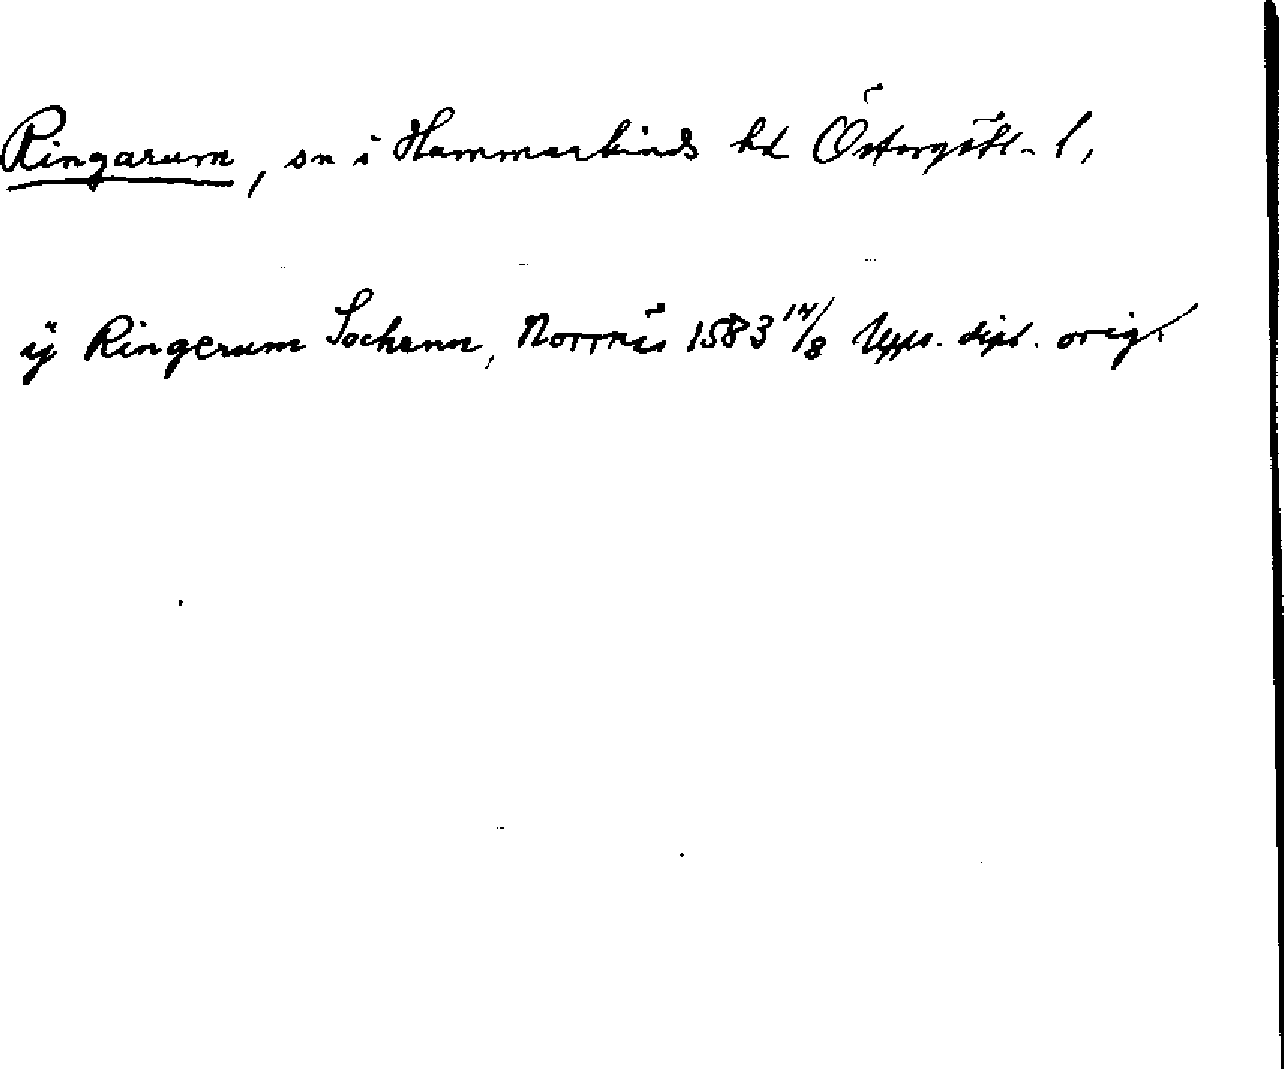 Ringarum, sn i Hammarkinds hd Östergötl. l,
ÿ Ringerum Sochenn, Norrnäs 1583 14/8 Upps. dipl. orig.